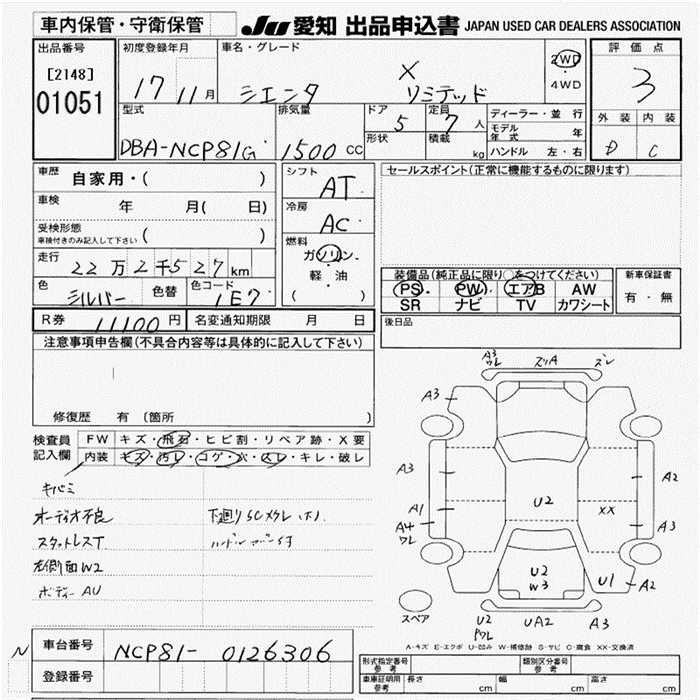 車内保管・守衛保管
JU 愛知 出品申込書 JAPAN USED CAR DEALERS ASSOCIATION
出品番号
[2148]
01051
初度登録年月
17 11月
車名・グレード
シエンタ
X
リミテッド
2WD
・
4WD
評価点
3
外装 内装
D C
型式
DBA-NCP81G
排気量
1500 CC
ドア 5
形状
定員 7 人
積載 kg
ディーラー・並行
モデル年式 年
ハンドル 左・右
車歴 自家用・( )
車検 年 月( 日)
受検形態
車検付きのみ記入して下さい ( )
走行 22万2千527km
色 シルバー 色替 色コード 1E7
シフト AT
冷房 AC
燃料
ガソリン・
軽・油
( )
セールスポイント(正常に機能するものに限ります)
装備品(純正品に限り○をつけてください)
PS PW エアB AW
SR ナビ TV カワシート
新車保証書
有・無
R券 11100円 名変通知期限 月 日
後日品
注意事項申告欄(不具合内容等は具体的に記入して下さい)
修復歴 有 (箇所 )
検査員
記入欄
FW キズ・飛石・ヒビ割・リペア跡・X要
内装 キズ・汚レ・コゲ・穴・スレ・キレ・破レ
キバミ
オーディオ不良
スタットレスT
左側面W2
ボディーAU
下廻りSCメクレ
A3
ワレ
ズリA
ズレ
A3
A3
A1
A4
ワレ
U2
XX
A2
A3
U2
W3
U1
A2
スペア
U2
ワレ
UA2
A3
A-キズ E-エクボ U-凹み W-補修跡 S-サビ C-腐食 XX-交換済
N
車台番号 NCP81-0126306
登録番号
形式指定番号
参考
類別区分番号
参考
車庫証明用
参考
長さ cm 幅 cm 高さ cm